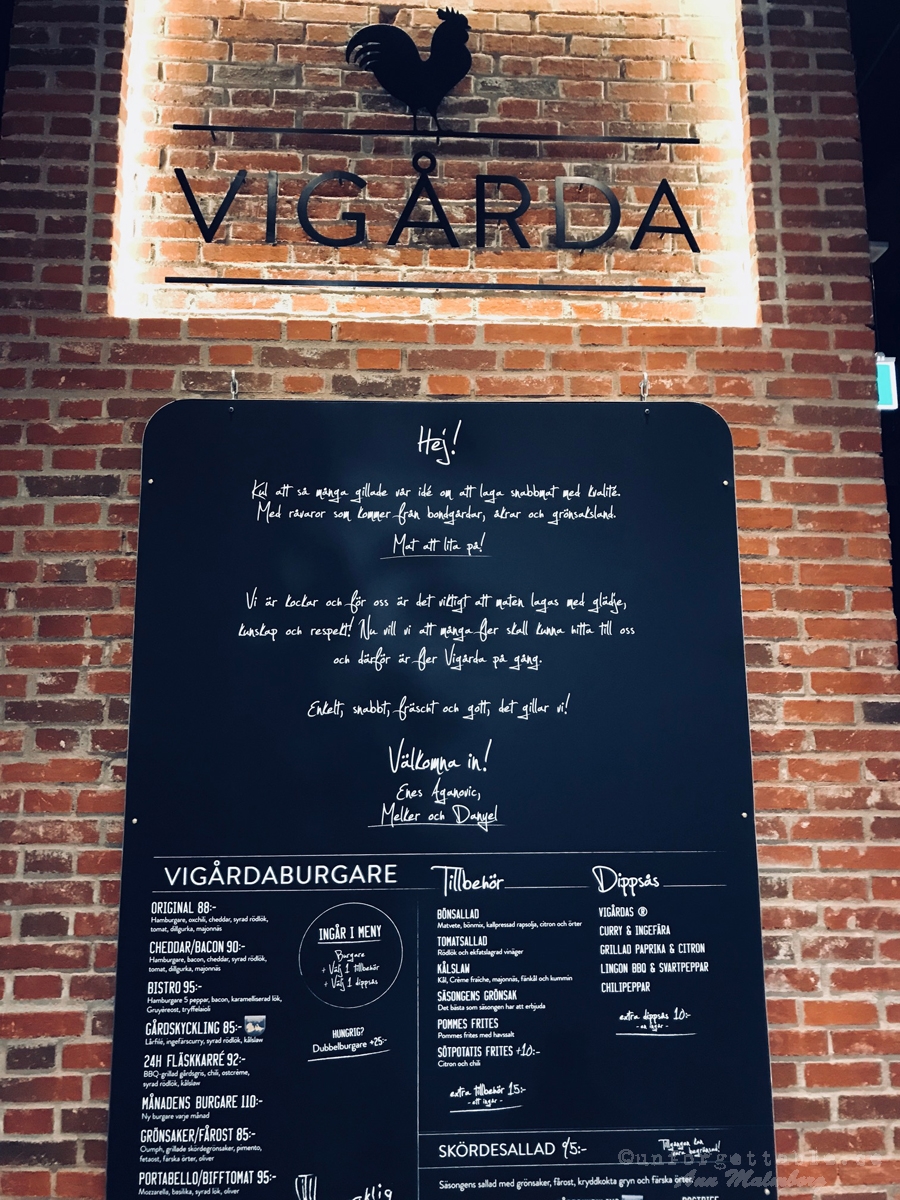 VIGÅRDA
Hej!
Kul att så många gillade vår idé om att laga snabbmat med kvalité.
Med råvaror som kommer från bondgårdar, åkrar och grönsaksland.
Mat att lita på!
Vi är kockar och för oss är det viktigt att maten lagas med glädje,
kunskap och respekt! Nu vill vi att många fler skall kunna hitta till oss
och därför är fler Vigårda på gång.
Enkelt, snabbt, fräscht och gott, det gillar vi!
Välkomna in!
Enes Aganovic,
Melker och Danyel
VIGÅRDABURGARE
ORIGINAL 88:-
Hamburgare, oxchili, cheddar, syrad rödlök,
tomat, dillgurka, majonnäs
CHEDDAR/BACON 90:-
Hamburgare, bacon, cheddar, syrad rödlök,
tomat, dillgurka, majonnäs
BISTRO 95:-
Hamburgare 5 peppar, bacon, karamelliserad lök,
Gruyéreost, tryffelaioli
GÅRDSKYCKLING 85:-
Lårfilé, ingefärscurry, syrad rödlök, kålslaw
24H FLÄSKKARRÉ 92:-
BBQ-grillad gårdsgris, chili, ostcrème,
syrad rödlök, kålslaw
MÅNADENS BURGARE 110:-
Ny burgare varje månad
GRÖNSAKER/FÅROST 85:-
Oumph, grillade skördegrönsaker, pimento,
fetaost, färska örter, oliver
PORTABELLO/BIFFTOMAT 95:-
Mozzarella, basilika, syrad rök, oliver
INGÅR I MENY
Burgare
+ Välj 1 tillbehör
+ Välj 1 dippsås
HUNGRIG?
Dubbelburgare +25:-
Tillbehör
BÖNSALLAD
Matvete, bönmix, kallpressad rapsolja, citron och örter
TOMATSALLAD
Rödlök och ekfatslagrad vinäger
KÅLSLAW
Kål, Crème fraîche, majonnäs, fänkål och kummin
SÄSONGENS GRÖNSAK
Det bästa som säsongen har att erbjuda
POMMES FRITES
Pommes frites med havssalt
SÖTPOTATIS FRITES +10:-
Citron och chili
extra tillbehör 15:-
- ett ingår -
Dippsås
VIGÅRDAS ®
CURRY & INGEFÄRA
GRILLAD PAPRIKA & CITRON
LINGON BBQ & SVARTPEPPAR
CHILIPEPPAR
extra dippsås 10:-
- en ingår -
SKÖRDESALLAD 95:-
Tillgången kan
vara begränsad!
Säsongens sallad med grönsaker, fårost, kryddkokta gryn och färska örter.